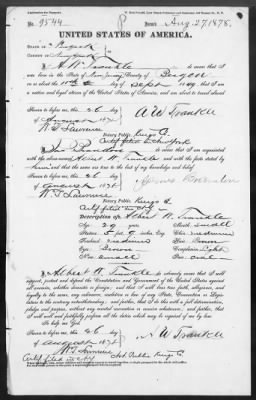 No. 9544
Issued Aug. 27, 1878.
UNITED STATES OF AMERICA.
STATE OF New York
COUNTY OF
I, A W Trankle do swear that I
was born in the State of New Jersey County of Bergen
on or about the 15th day of Sept 1849, that I am
a native and loyal citizen of the United States of America, and am about to travel abroad
Sworn to before me, this 26 day
of August 1878
A W Trankle
W F Lawrence
Notary Public Kings Co
Certif filed in New York
do swear that I am acquainted
with the above-named Albert W. Trankle and with the facts stated by
him and that the same are true to the best of my knowledge and belief.
Sworn to before me, this 26 day
of August 1878
Notary Public Kings Co
Certif filed in
Description of Albert W. Trankle
Age: 29 years
Mouth: small
Stature: 5 feet 9 inches Eng.
Chin: medium
Forehead: medium
Hair: Brown
Eyes: Brown
Complexion: light
Nose: small
Face: oval
I, Albert W. Trankle do solemnly swear that I will
support, protect and defend the Constitution and Government of the United States against
all enemies, whether domestic or foreign; and that I will bear true faith, allegiance, and
loyalty to the same, any ordinance, resolution or law of any State, Convention or Legis-
lature to the contrary notwithstanding; and further, that I do this with a full determination,
pledge and purpose, without any mental reservation or evasion whatsoever; and further, that
I will well and faithfully perform all the duties which may be required of me by law.
So help me God.
Sworn to before me, this 26 day
of August 1878
A W Trankle
W F Lawrence
Not Public Kings Co
Certif filed in NY